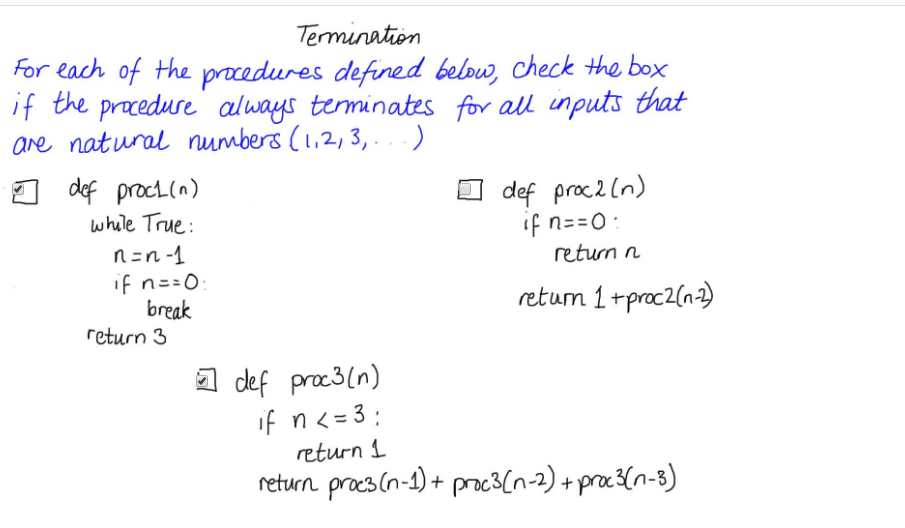 Termination
For each of the procedures defined below, check the box
if the procedure always terminates for all inputs that
are natural numbers (1,2,3,...)
def proc1(n)
while True:
n=n-1
if n==0:
break
return 3
def proc2(n)
if n==0:
return n
return 1+proc2(n-2)
def proc3(n)
if n<=3:
return 1
return proc3(n-1)+ proc3(n-2)+proc3(n-3)